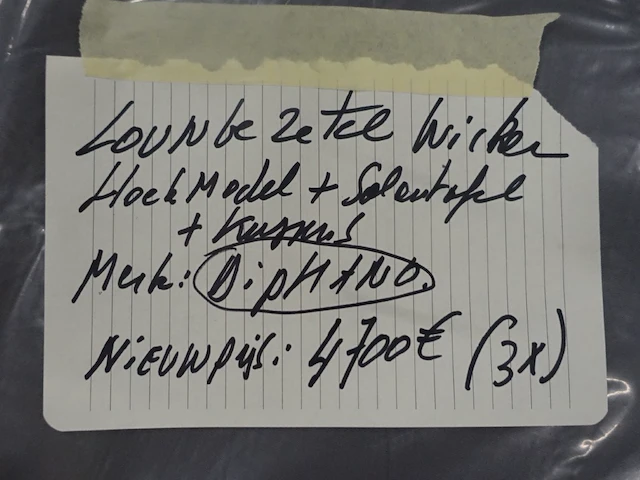 Lounge Zetel Wicker
Hoek Model + Salontafel
+ Kussens
Merk: DipHANO.
NiEUWpijs: 4700€ (3x)